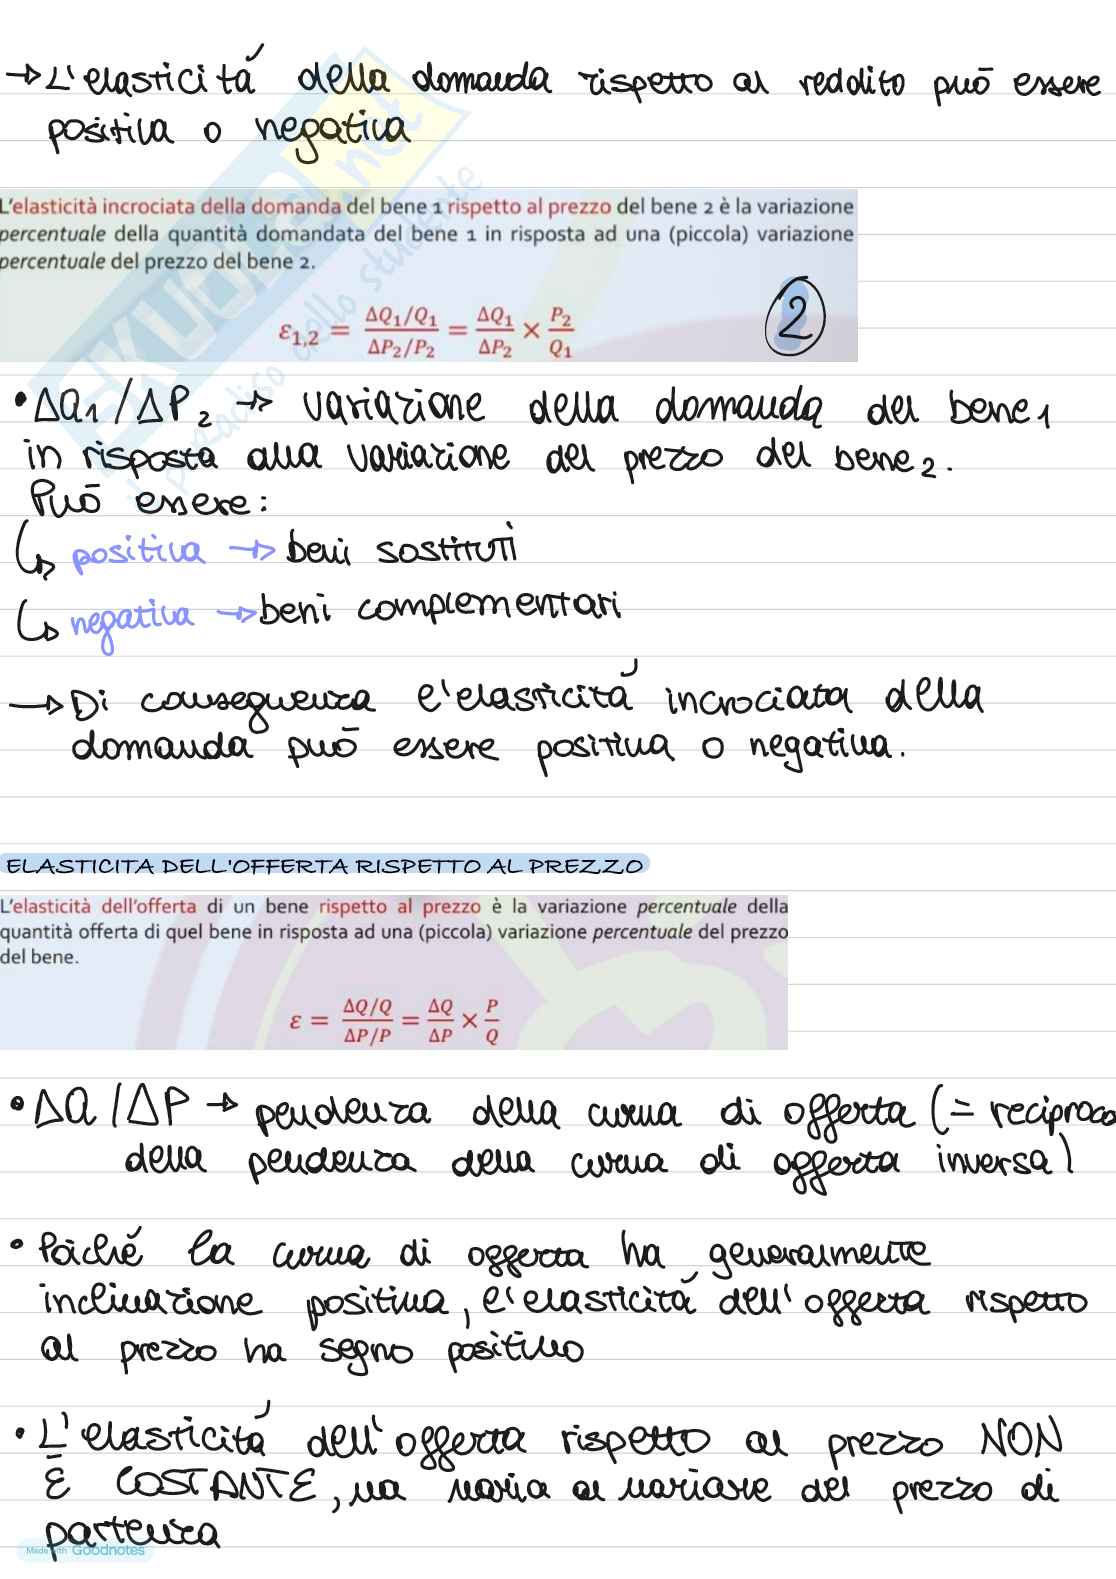 → L'elasticitá della domanda rispetto al reddito può essere
positiva o negativa
L'elasticità incrociata della domanda del bene 1 rispetto al prezzo del bene 2 è la variazione
percentuale della quantità domandata del bene 1 in risposta ad una (piccola) variazione
percentuale del prezzo del bene 2.
ε1,2 = ΔQ1/Q1 / ΔP2/P2 = ΔQ1/ΔP2 × P2/Q1
2
• ΔQ1/ΔP2 → variazione della domanda del bene1
in risposta alla variazione del prezzo del bene2.
Può essere:
↳ positiva → beni sostituti
↳ negativa → beni complementari
→ Di conseguenza l'elasticitá incrociata della
domanda può essere positiva o negativa.
ELASTICITA DELL'OFFERTA RISPETTO AL PREZZO
L'elasticità dell'offerta di un bene rispetto al prezzo è la variazione percentuale della
quantità offerta di quel bene in risposta ad una (piccola) variazione percentuale del prezzo
del bene.
ε = ΔQ/Q / ΔP/P = ΔQ/ΔP × P/Q
• ΔQ/ΔP → pendenza della curva di offerta (= reciproco
della pendenza della curva di offerta inversa)
• Poiché la curva di offerta ha generalmente
inclinazione positiva, l'elasticitá dell'offerta rispetto
al prezzo ha segno positivo
• L'elasticitá dell'offerta rispetto al prezzo NON
È COSTANTE, ma varia al variare del prezzo di
partenza
Made with Goodnotes
SKUOLA.net
il paradiso dello studente